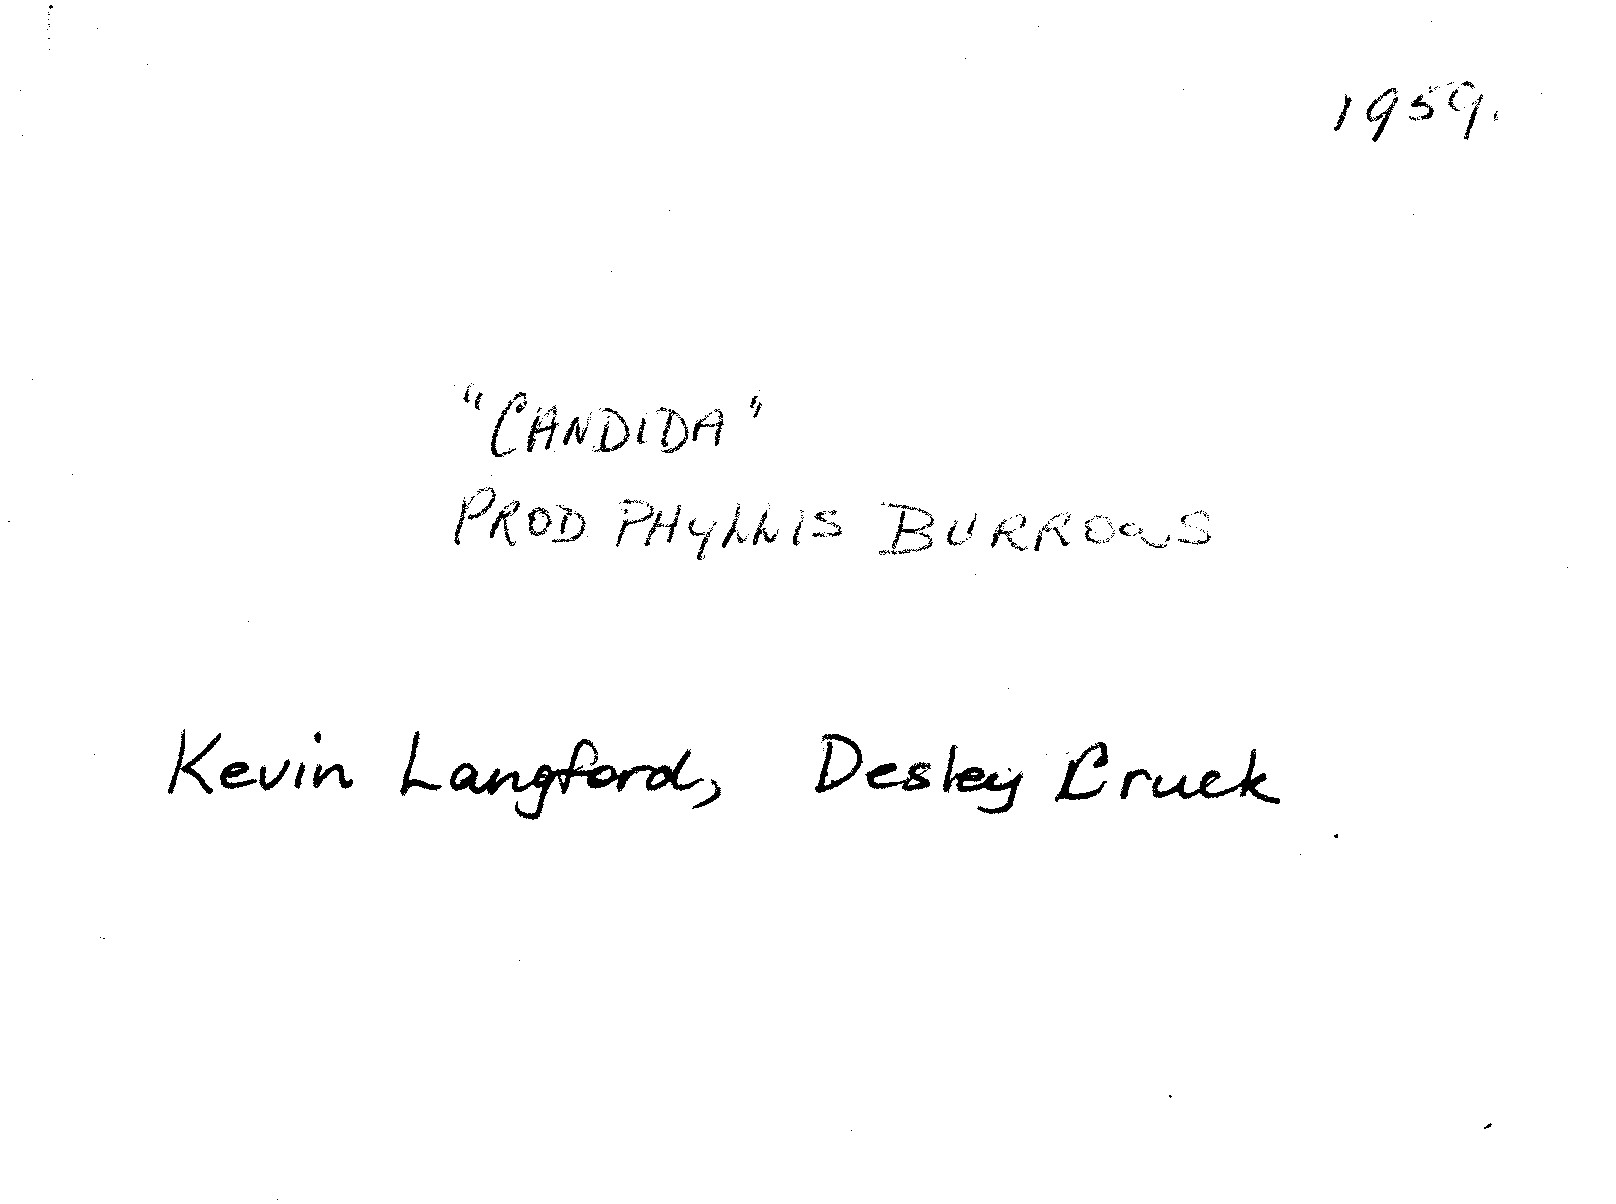 1959.
"CANDIDA"
PROD PHYLLIS BURROWS
Kevin Langford, Desley